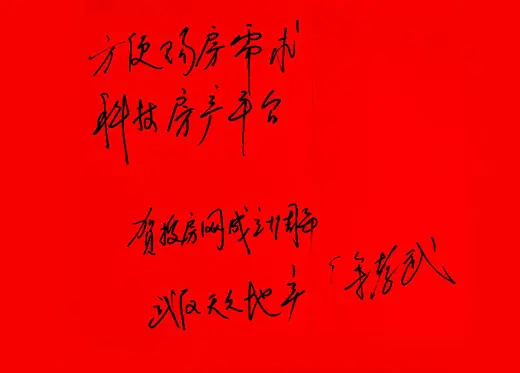 方便购房需求
科技房产平台
贺搜房网成立11周年
武汉天久地产 徐孝武